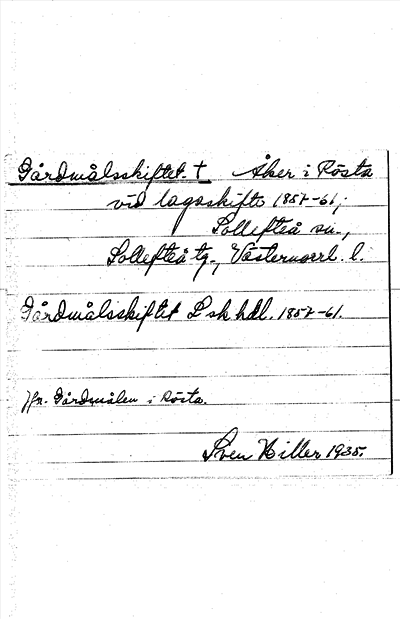 Gårdmålsskiftet. † Åker i Rösta
vid lagaskifte 1857-61,
Sollefteå sn.,
Sollefteå tg., Västernorrl. l.
Gårdmålsskiftet Lsk hdl. 1857-61.
Jfr. Gårdmålen i Rösta.
Sven Hiller 1935.